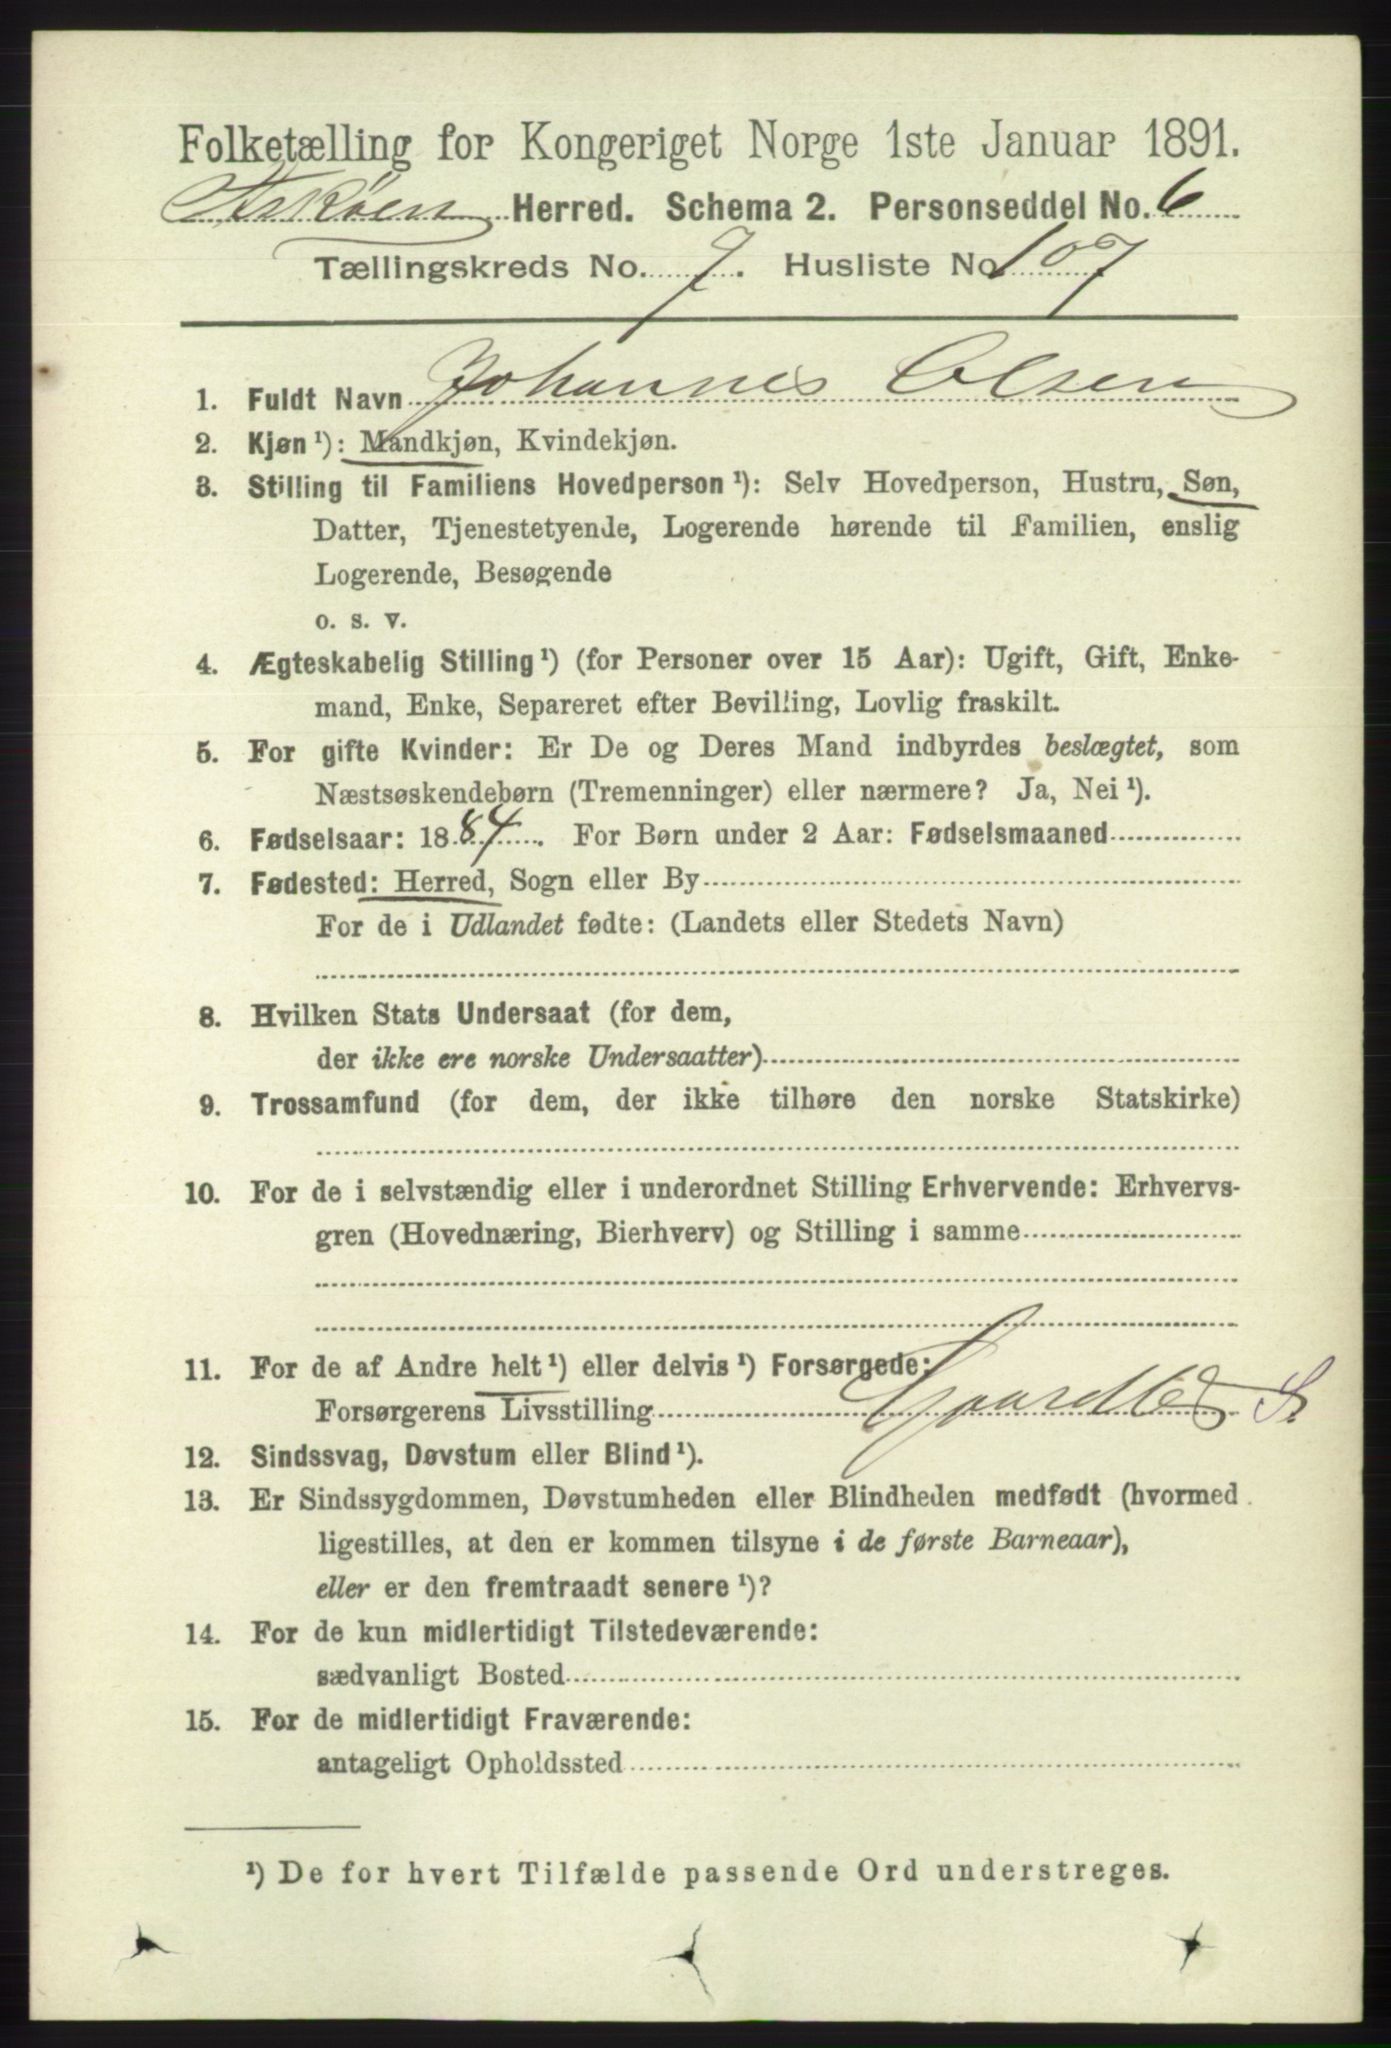 Folketælling for Kongeriget Norge 1ste Januar 1891.
Askøen Herred. Schema 2. Personseddel No. 6
Tællingskreds No. 9. Husliste No. 107
1. Fuldt Navn Johannes Olsen
2. Kjøn ¹): Mandkjøn, Kvindekjøn.
3. Stilling til Familiens Hovedperson ¹): Selv Hovedperson, Hustru, Søn,
Datter, Tjenestetyende, Logerende hørende til Familien, enslig
Logerende, Besøgende
o. s. v.
4. Ægteskabelig Stilling ¹) (for Personer over 15 Aar): Ugift, Gift, Enke-
mand, Enke, Separeret efter Bevilling, Lovlig fraskilt.
5. For gifte Kvinder: Er De og Deres Mand indbyrdes beslægtet, som
Næstsøskendebørn (Tremenninger) eller nærmere? Ja, Nei ¹).
6. Fødselsaar: 1884. For Børn under 2 Aar: Fødselsmaaned
7. Fødested: Herred, Sogn eller By
For de i Udlandet fødte: (Landets eller Stedets Navn)
8. Hvilken Stats Undersaat (for dem,
der ikke ere norske Undersaatter)
9. Trossamfund (for dem, der ikke tilhøre den norske Statskirke)
10. For de i selvstændig eller i underordnet Stilling Erhvervende: Erhvervs-
gren (Hovednæring, Bierhverv) og Stilling i samme
11. For de af Andre helt ¹) eller delvis ¹) Forsørgede:
Forsørgerens Livsstilling Gaardbr S.
12. Sindssvag, Døvstum eller Blind ¹).
13. Er Sindssygdommen, Døvstumheden eller Blindheden medfødt (hvormed
ligestilles, at den er kommen tilsyne i de første Barneaar),
eller er den fremtraadt senere ¹)?
14. For de kun midlertidigt Tilstedeværende:
sædvanligt Bosted
15. For de midlertidigt Fraværende:
antageligt Opholdssted
¹) De for hvert Tilfælde passende Ord understreges.